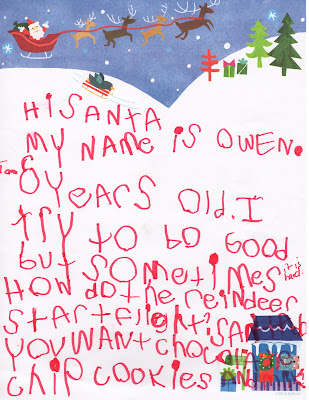 HI SANTA
MY NAMe is OWEN.
I am 6
YeARS Old. I
try to bo Good
but SOMetiMes it is hard.
HOW do the reindeer
Start flight? SANtA
YOU WANt chocolate
chip cookies and